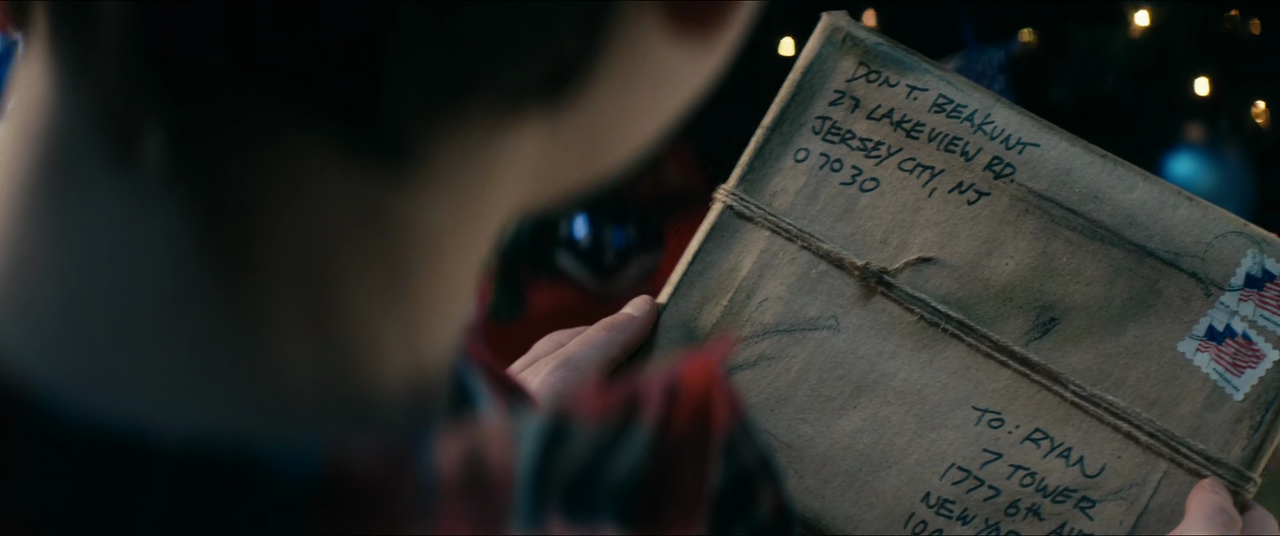 DON T. BEAKUNT
27 LAKEVIEW RD.
JERSEY CITY, NJ
07030
TO: RYAN
7 TOWER
1777 6th
NEW